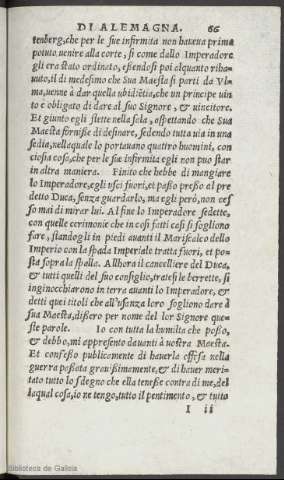 DI ALEMAGNA. 66
tenberg, che per le sue infirmita non haueua prima
potuto uenire alla corte, si come dallo Imperadore
gli era stato ordinato, essendosi poi alquanto riha-
uuto, il di medesimo che Sua Maesta si parti da Vl-
ma, uenne à dar quella ubidiẽtia, che un principe uin
to è obligato di dare al suo Signore, & uincitore.
Et giunto egli stette nella sala, aspettando che Sua
Maesta fornisse di desinare, sedendo tutta uia in una
sedia, nellaquale lo portauano quattro huomini, con
ciosia cosa, che per le sue infirmita egli non puo star
in altra maniera. Finito che hebbe di mangiare
lo Imperadore, egli usci fuori, et passò presso al pre
detto Duca, senza guardarlo, ma egli però, non ces
sò mai di mirar lui. Al fine lo Imperadore sedette,
con quelle cerimonie che in cosi fatti casi si sogliono
fare, standogli in piedi auanti il Mariscalco dello
Imperio con la spada Imperiale tratta fuori, et po-
sta sopra la spalla. Allhora il cancelliere del Duca,
& tutti quelli del suo consiglio, tratesi le berrette, si
inginocchiarono in terra auanti lo Imperadore, &
detti quei titoli che all'usenza loro sogliono dare à
sua Maesta, dissero per nome del lor Signore que-
ste parole. Io con tutta la humilta che posso,
& debbo, mi appresento dauanti à uostra Maesta.
Et confesso publicamente di hauerla offesa nella
guerra passata grauissimamente, & di hauer meri-
tato tutto lo sdegno che ella tenesse contra di me, del
laqual cosa, io ne tengo, tutto il pentimento, & tutto
I ii
Biblioteca de Galicia